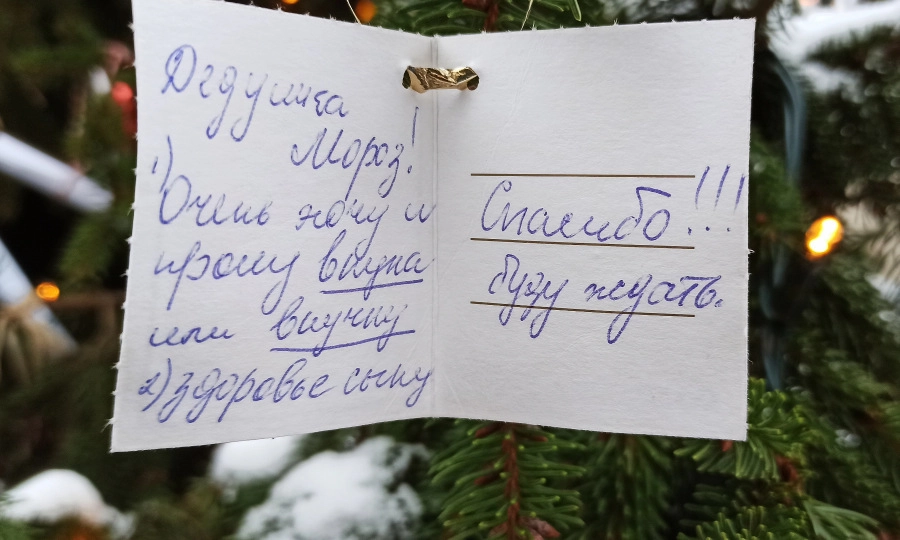 Дедушка
Мороз!
1)
Очень хочу и
прошу внука
или внучку
2) здоровье сыну
Спасибо!!!
буду ждать.